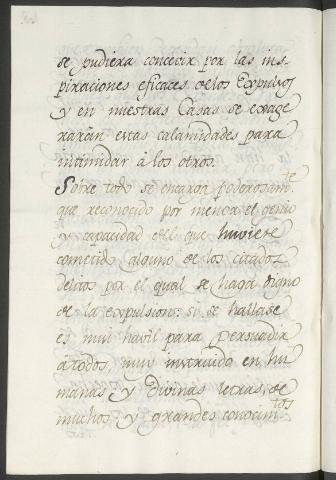 se pudiera concebir por las ins-
piraciones eficaces de los Expulsos
y en nuestras Casas se exage
xarán estas calamidades para
intimidar à los otros.
Sobre todo se encarga poderosam.te
que reconocido por menor el genio
y capacidad del que huviese
comerido alguno de los citados
delitos por el qual se haga digno
de la expulsion: si se hallase
es mui havil para persuadir
à todos, muy instruido en hu
manas y divinas letras, de
muchos y grandes conocim.tos